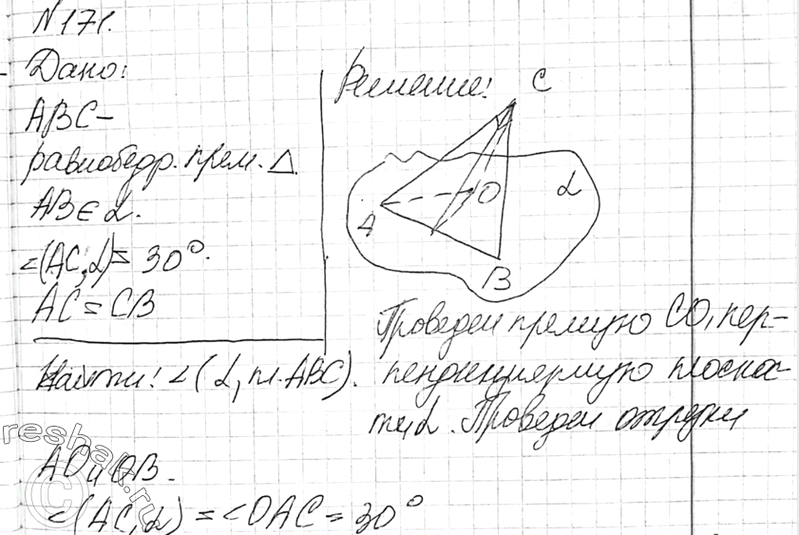 N171.
Дано:
ABC-
равнобедр. прям. Δ.
AB∈α.
∠(AC,α)=30°.
AC=CB
Найти: ∠(α, пл. ABC).
Решение:
C
O
α
A
B
Проведем прямую CO, пер-
пендикулярную плоскос-
ти α. Проведем отрезки
AO и OB.
∠(AC,α)=∠OAC=30°
reshak.ru